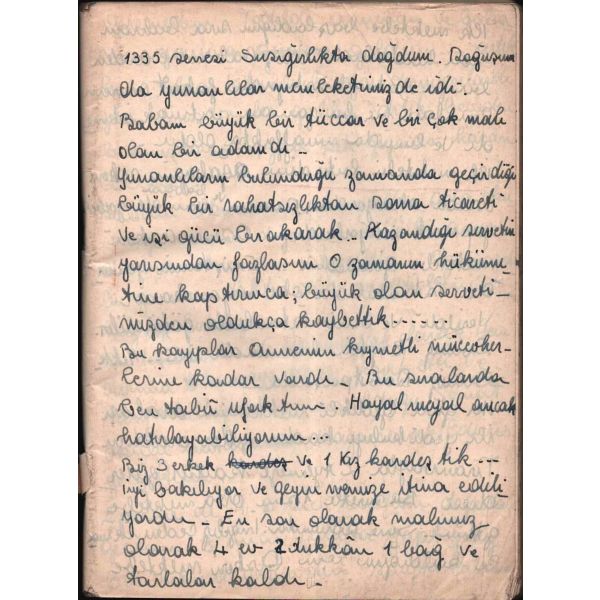 1335 senesi Susığırlıkta doğdum. Doğuşum
da yunanlılar memleketimizde idi.
Babam büyük bir tüccar ve bir çok malı
olan bir adamdı -
yunanlıların bulunduğu zamanda geçirdiği
büyük bir rahatsızlıktan sonra ticareti
ve işi gücü bırakarak.. Kazandığı servetin
yarısından fazlasını O zamanın hüküme-
tine kaptırınca; büyük olan serveti-
mizden oldukça kaybettik......
Bu kayıplar Annemin kıymetli mücevher-
lerine kadar vardı - Bu sıralarda
ben tabii ufaktım. Hayal mayal ancak
hatırlayabiliyorum...
Biz 3 erkek kardeş ve 1 kız kardeş tik...
iyi bakılıyor ve geyinmemize itina edili-
yordu - En son olarak malımız
olarak 4 ev 2 dukkân 1 bağ ve
tarlalar kaldı -